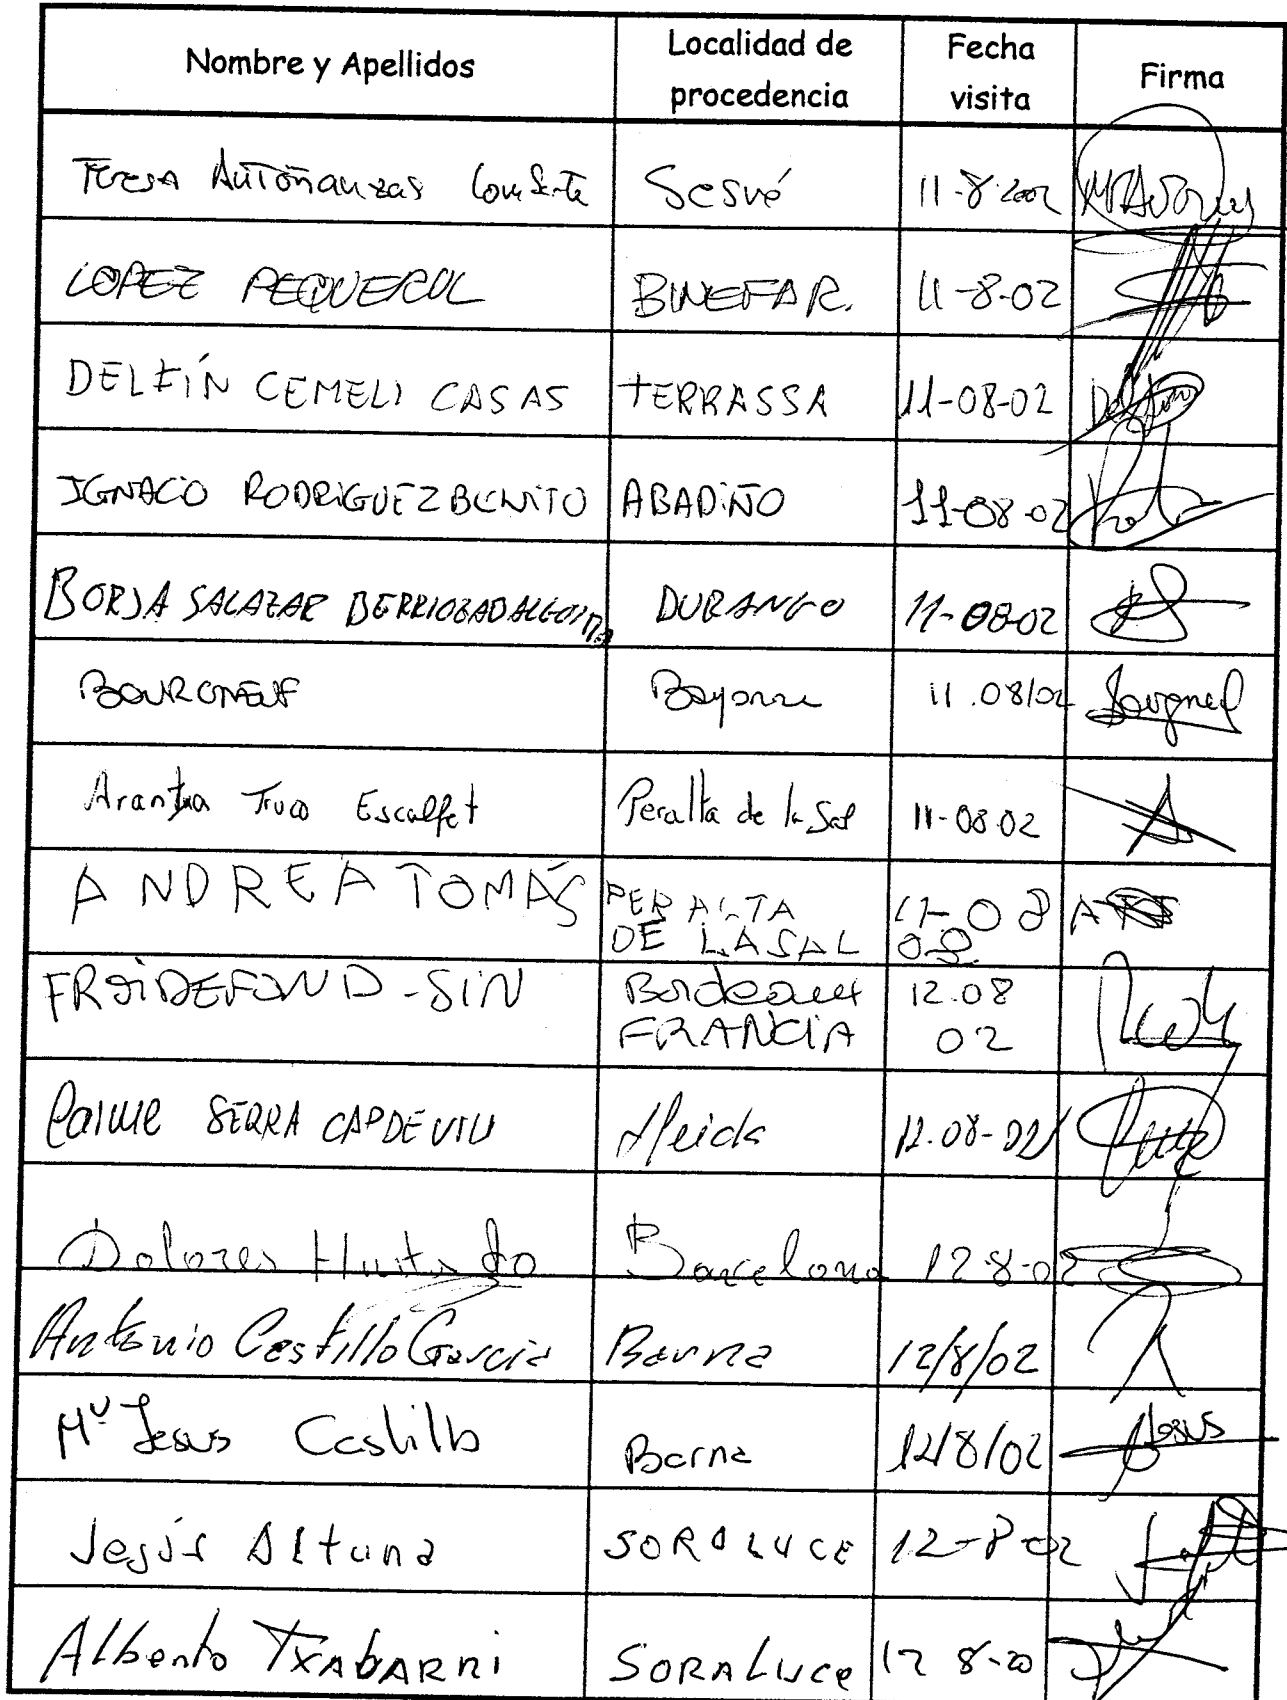 Nombre y Apellidos Localidad de procedencia Fecha visita Firma
Teresa Autoñanzas Sesué 11-8-2002
LOPEZ PEQUEROL BINEFAR. 11-8-02
DELFÍN CEMELI CASAS TERRASSA 11-08-02
IGNACIO RODRIGUEZ BENITO ABADIÑO 11-08-02
BORJA SALAZAR DURANGO 11-08-02
BOURGNEUF Bayonne 11.08/02
Arantxa Truco Escalfet Peralta de la Sal 11-08-02
ANDREA TOMÁS PERALTA DE LA SAL 11-08 02
FROIDEFOND-SIN Bordeaux FRANCIA 12.08 02
SERRA CAPDEVILA Lleida 12.08-02
Dolores Hurtado Barcelona 12-8-02
Antonio Castillo Garcia Barna 12/8/02
Mª Jesus Castillo Barna 12/8/02 Jesus
Jesús Altuna SORALUCE 12-8-02
Alberto TXABARRI SORALUCE 12 8-20